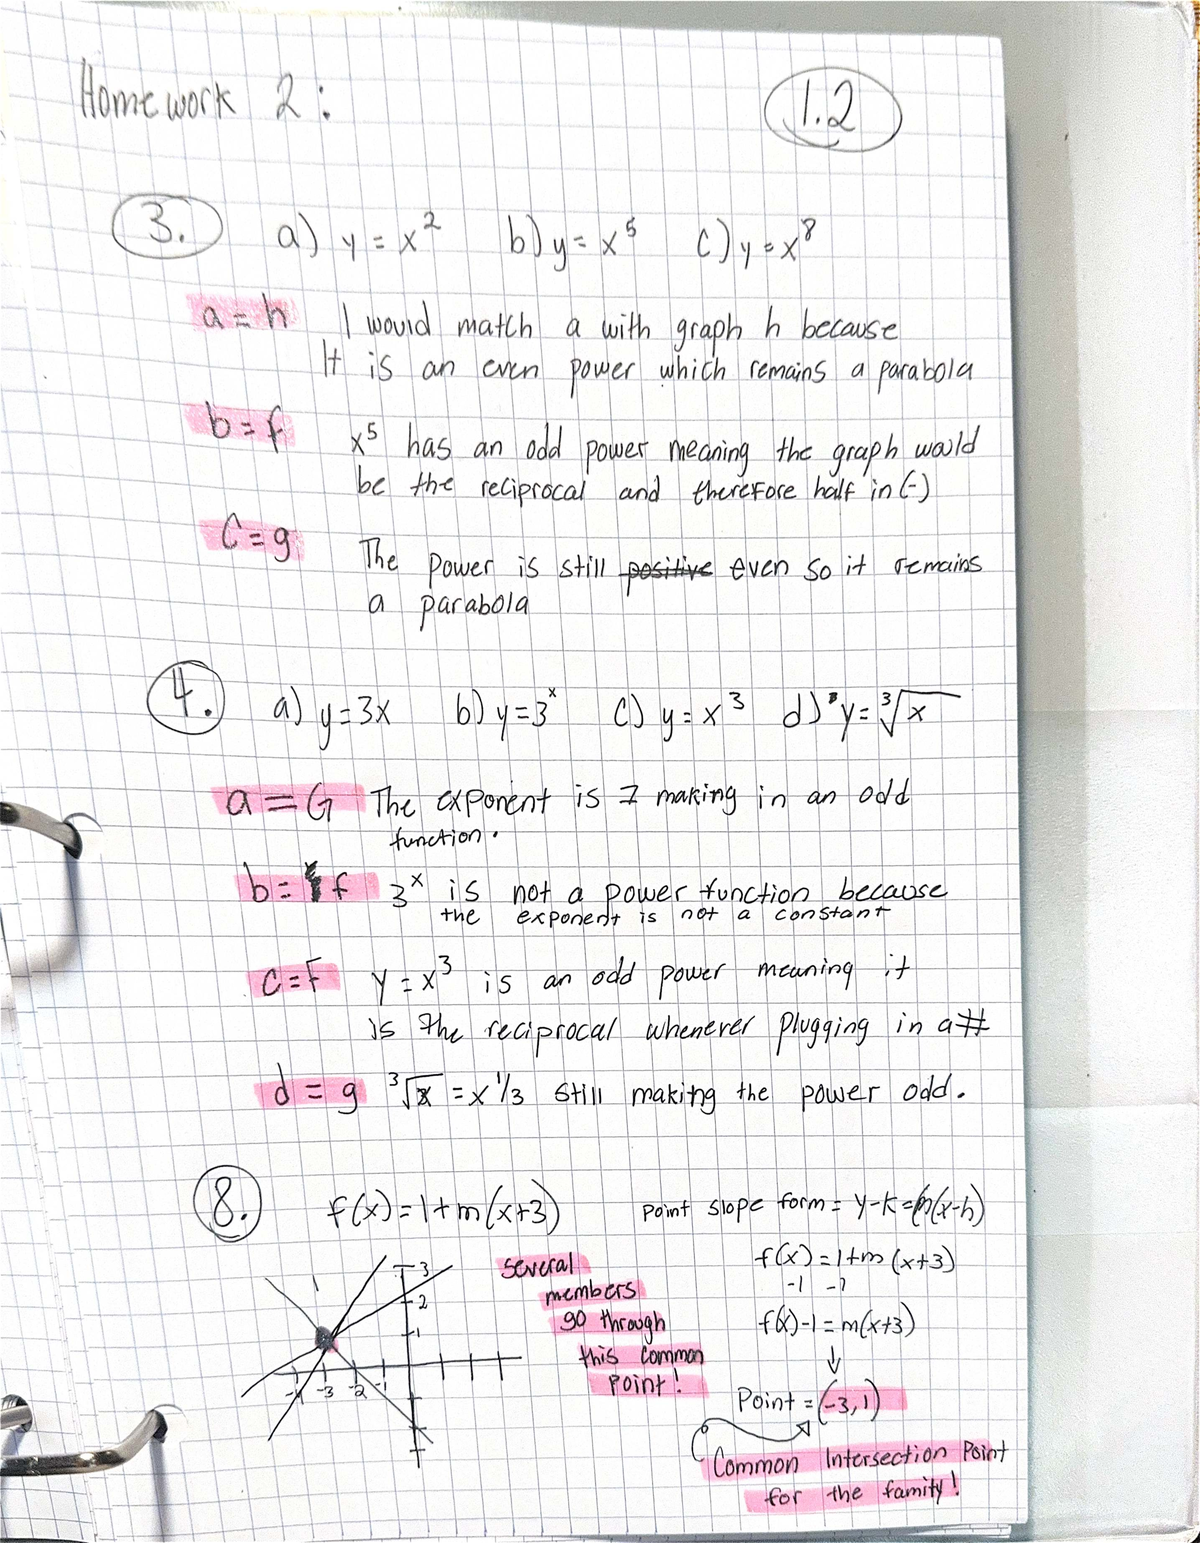 Homework 2:
1.2
3. a) y = x² b) y = x⁵ c) y = x⁸
a = h I would match a with graph h because
It is an even power which remains a parabola
b = f x⁵ has an odd power meaning the graph would
be the reciprocal and therefore half in (-)
C = g The power is still positive even so it remains
a parabola
4. a) y = 3x b) y = 3ˣ c) y = x³ d) y = ³√x
a = G The exponent is 1 making in an odd
function.
b = f 3ˣ is not a power function because
the exponent is not a constant
c = F y = x³ is an odd power meaning it
is the reciprocal whenever plugging in a #
d = g ³√x = x^1/3 still making the power odd.
8. f(x) = 1 + m(x+3) Point slope form = y-k = m(x-h)
3
2
1
-4 -3 -2 -1
several
members
go through
this common
point!
f(x) = 1 + m(x+3)
-1 -1
f(x) - 1 = m(x+3)
↓
Point = (-3, 1)
Common Intersection Point
for the family!